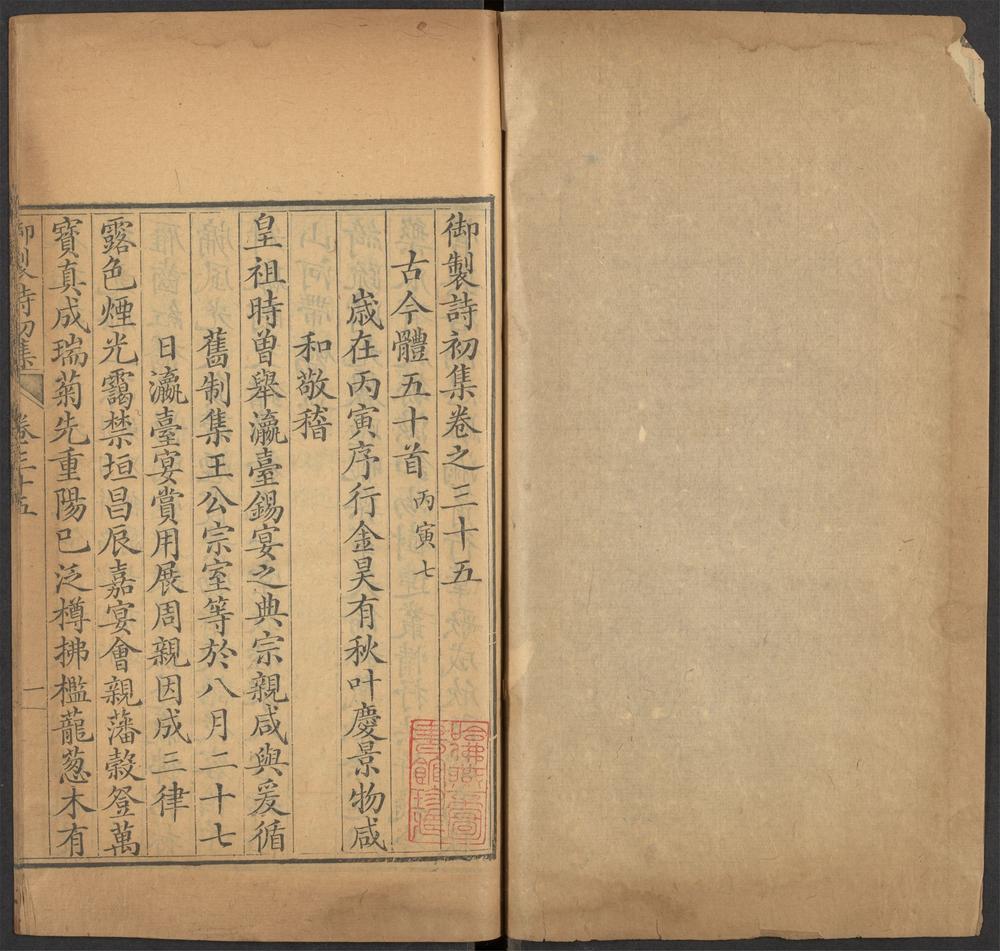 御製詩初集卷之三十五
古今體五十首 丙寅七
歲在丙寅序行金昊有秋叶慶景物咸
和敬稽
皇祖時曾舉瀛臺錫宴之典宗親咸與爰循
舊制集王公宗室等於八月二十七
日瀛臺宴賞用展周親因成三律
露色煙光靄禁垣昌辰嘉宴會親藩穀登萬
寳真成瑞菊先重陽巳泛樽拂檻蘢葱木有
御製詩初集 卷三十五 一
哈佛燕京圖書館珍藏